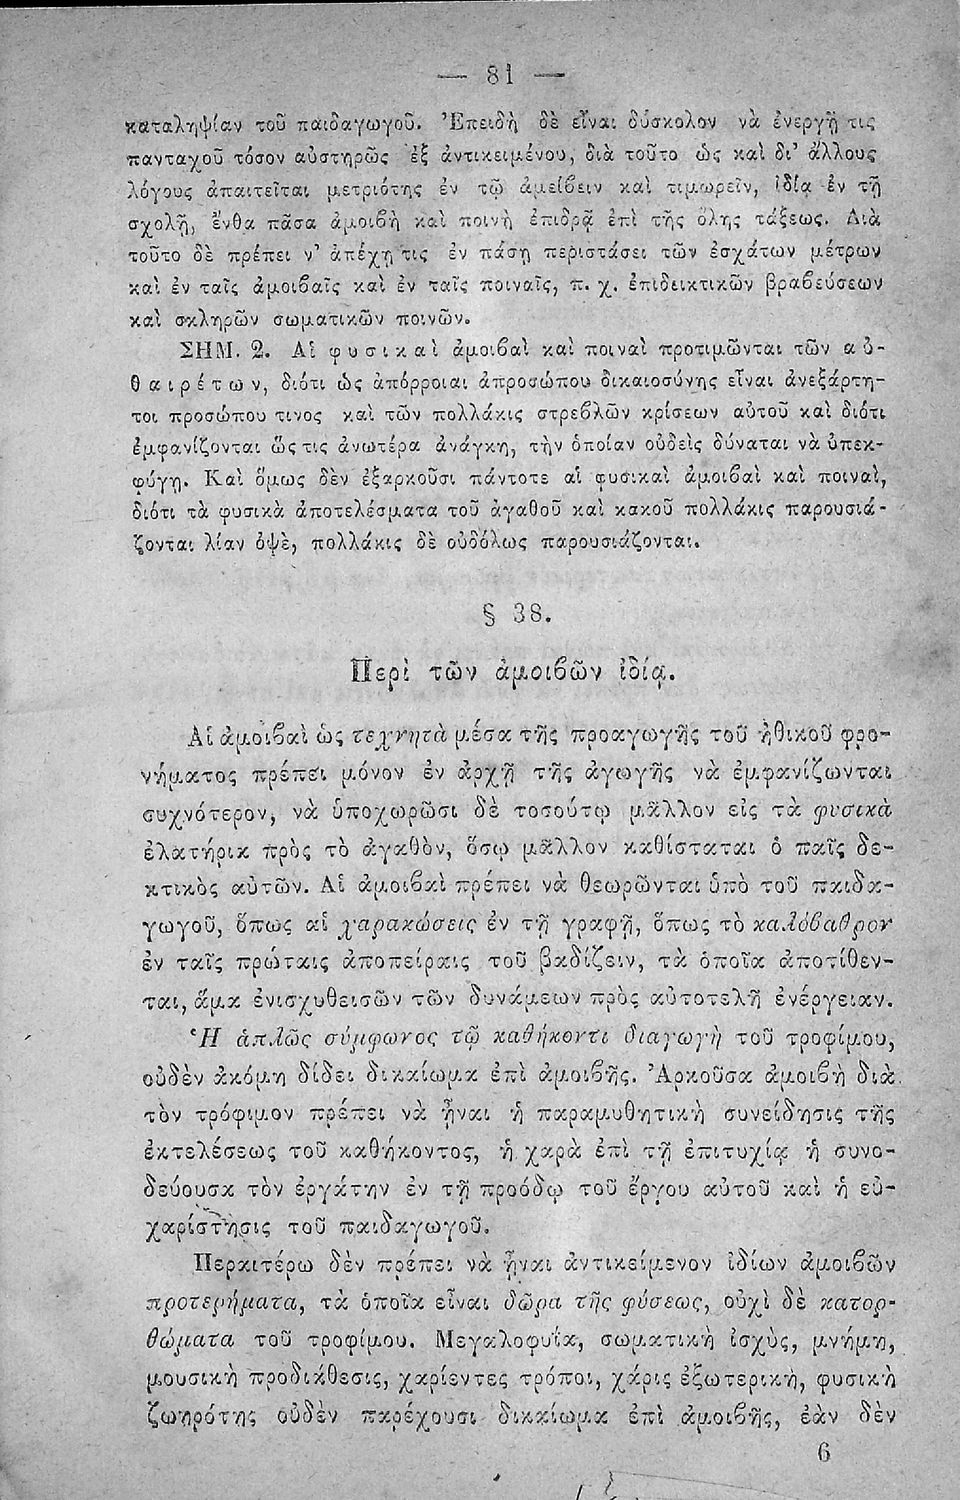 — 81 —
καταληψίαν τοῦ παιδαγωγοῦ. Ἐπειδὴ δὲ εἶναι δύσκολον νὰ ἐνεργῇ τις
πανταχοῦ τόσον αὐστηρῶς ἐξ ἀντικειμένου, διὰ τοῦτο ὡς καὶ δι' ἄλλους
λόγους ἀπαιτεῖται μετριότης ἐν τῷ ἀμείβειν καὶ τιμωρεῖν, ἰδίᾳ ἐν τῇ
σχολῇ, ἔνθα πᾶσα ἀμοιβὴ καὶ ποινὴ ἐπιδρᾷ ἐπὶ τῆς ὅλης τάξεως. Διὰ
τοῦτο δὲ πρέπει ν' ἀπέχῃ τις ἐν πάσῃ περιστάσει τῶν ἐσχάτων μέτρων
καὶ ἐν ταῖς ἀμοιβαῖς καὶ ἐν ταῖς ποιναῖς, π. χ. ἐπιδεικτικῶν βραβεύσεων
καὶ σκληρῶν σωματικῶν ποινῶν.
ΣΗΜ. 2. Αἱ φυσικαὶ ἀμοιβαὶ καὶ ποιναὶ προτιμῶνται τῶν αὐ-
θαιρέτων, διότι ὡς ἀπόρροιαι ἀπροσώπου δικαιοσύνης εἶναι ἀνεξάρτη-
τοι προσώπου τινος καὶ τῶν πολλάκις στρεβλῶν κρίσεων αὐτοῦ καὶ διότι
ἐμφανίζονται ὥς τις ἀνωτέρα ἀνάγκη, τὴν ὁποίαν οὐδεὶς δύναται νὰ ὑπεκ-
φύγῃ. Καὶ ὅμως δὲν ἐξαρκοῦσι πάντοτε αἱ φυσικαὶ ἀμοιβαὶ καὶ ποιναὶ,
διότι τὰ φυσικὰ ἀποτελέσματα τοῦ ἀγαθοῦ καὶ κακοῦ πολλάκις παρουσιά-
ζονται λίαν ὀψὲ, πολλάκις δὲ οὐδόλως παρουσιάζονται.
§ 38.
Περὶ τῶν ἀμοιβῶν ἰδίᾳ.
Αἱ ἀμοιβαὶ ὡς τεχνητὰ μέσα τῆς προαγωγῆς τοῦ ἠθικοῦ φρο-
νήματος πρέπει μόνον ἐν ἀρχῇ τῆς ἀγωγῆς νὰ ἐμφανίζωνται
συχνότερον, νὰ ὑποχωρῶσι δὲ τοσούτῳ μᾶλλον εἰς τὰ φυσικὰ
ἐλατήρια πρὸς τὸ ἀγαθὸν, ὅσῳ μᾶλλον καθίσταται ὁ παῖς δε-
κτικὸς αὐτῶν. Αἱ ἀμοιβαὶ πρέπει νὰ θεωρῶνται ὑπὸ τοῦ παιδα-
γωγοῦ, ὅπως αἱ χαρακώσεις ἐν τῇ γραφῇ, ὅπως τὸ καλόβαθρον
ἐν ταῖς πρώταις ἀποπείραις τοῦ βαδίζειν, τὰ ὁποῖα ἀποτίθεν-
ται, ἅμα ἐνισχυθεισῶν τῶν δυνάμεων πρὸς αὐτοτελῆ ἐνέργειαν.
Ἡ ἁπλῶς σύμφωνος τῷ καθήκοντι διαγωγὴ τοῦ τροφίμου,
οὐδὲν ἀκόμη δίδει δικαίωμα ἐπὶ ἀμοιβῆς. Ἀρκοῦσα ἀμοιβὴ διὰ
τὸν τρόφιμον πρέπει νὰ ᾖναι ἡ παραμυθητικὴ συνείδησις τῆς
ἐκτελέσεως τοῦ καθήκοντος, ἡ χαρὰ ἐπὶ τῇ ἐπιτυχίᾳ ἡ συνο-
δεύουσα τὸν ἐργάτην ἐν τῇ προόδῳ τοῦ ἔργου αὐτοῦ καὶ ἡ εὐ-
χαρίστησις τοῦ παιδαγωγοῦ.
Περαιτέρω δὲν πρέπει νὰ ᾖναι ἀντικείμενον ἰδίων ἀμοιβῶν
προτερήματα, τὰ ὁποῖα εἶναι δῶρα τῆς φύσεως, οὐχὶ δὲ κατορ-
θώματα τοῦ τροφίμου. Μεγαλοφυΐα, σωματικὴ ἰσχὺς, μνήμη,
μουσικὴ προδιάθεσις, χαρίεντες τρόποι, χάρις ἐξωτερικὴ, φυσικὴ
ζωηρότης οὐδὲν παρέχουσι δικαίωμα ἐπὶ ἀμοιβῆς, ἐὰν δὲν
6